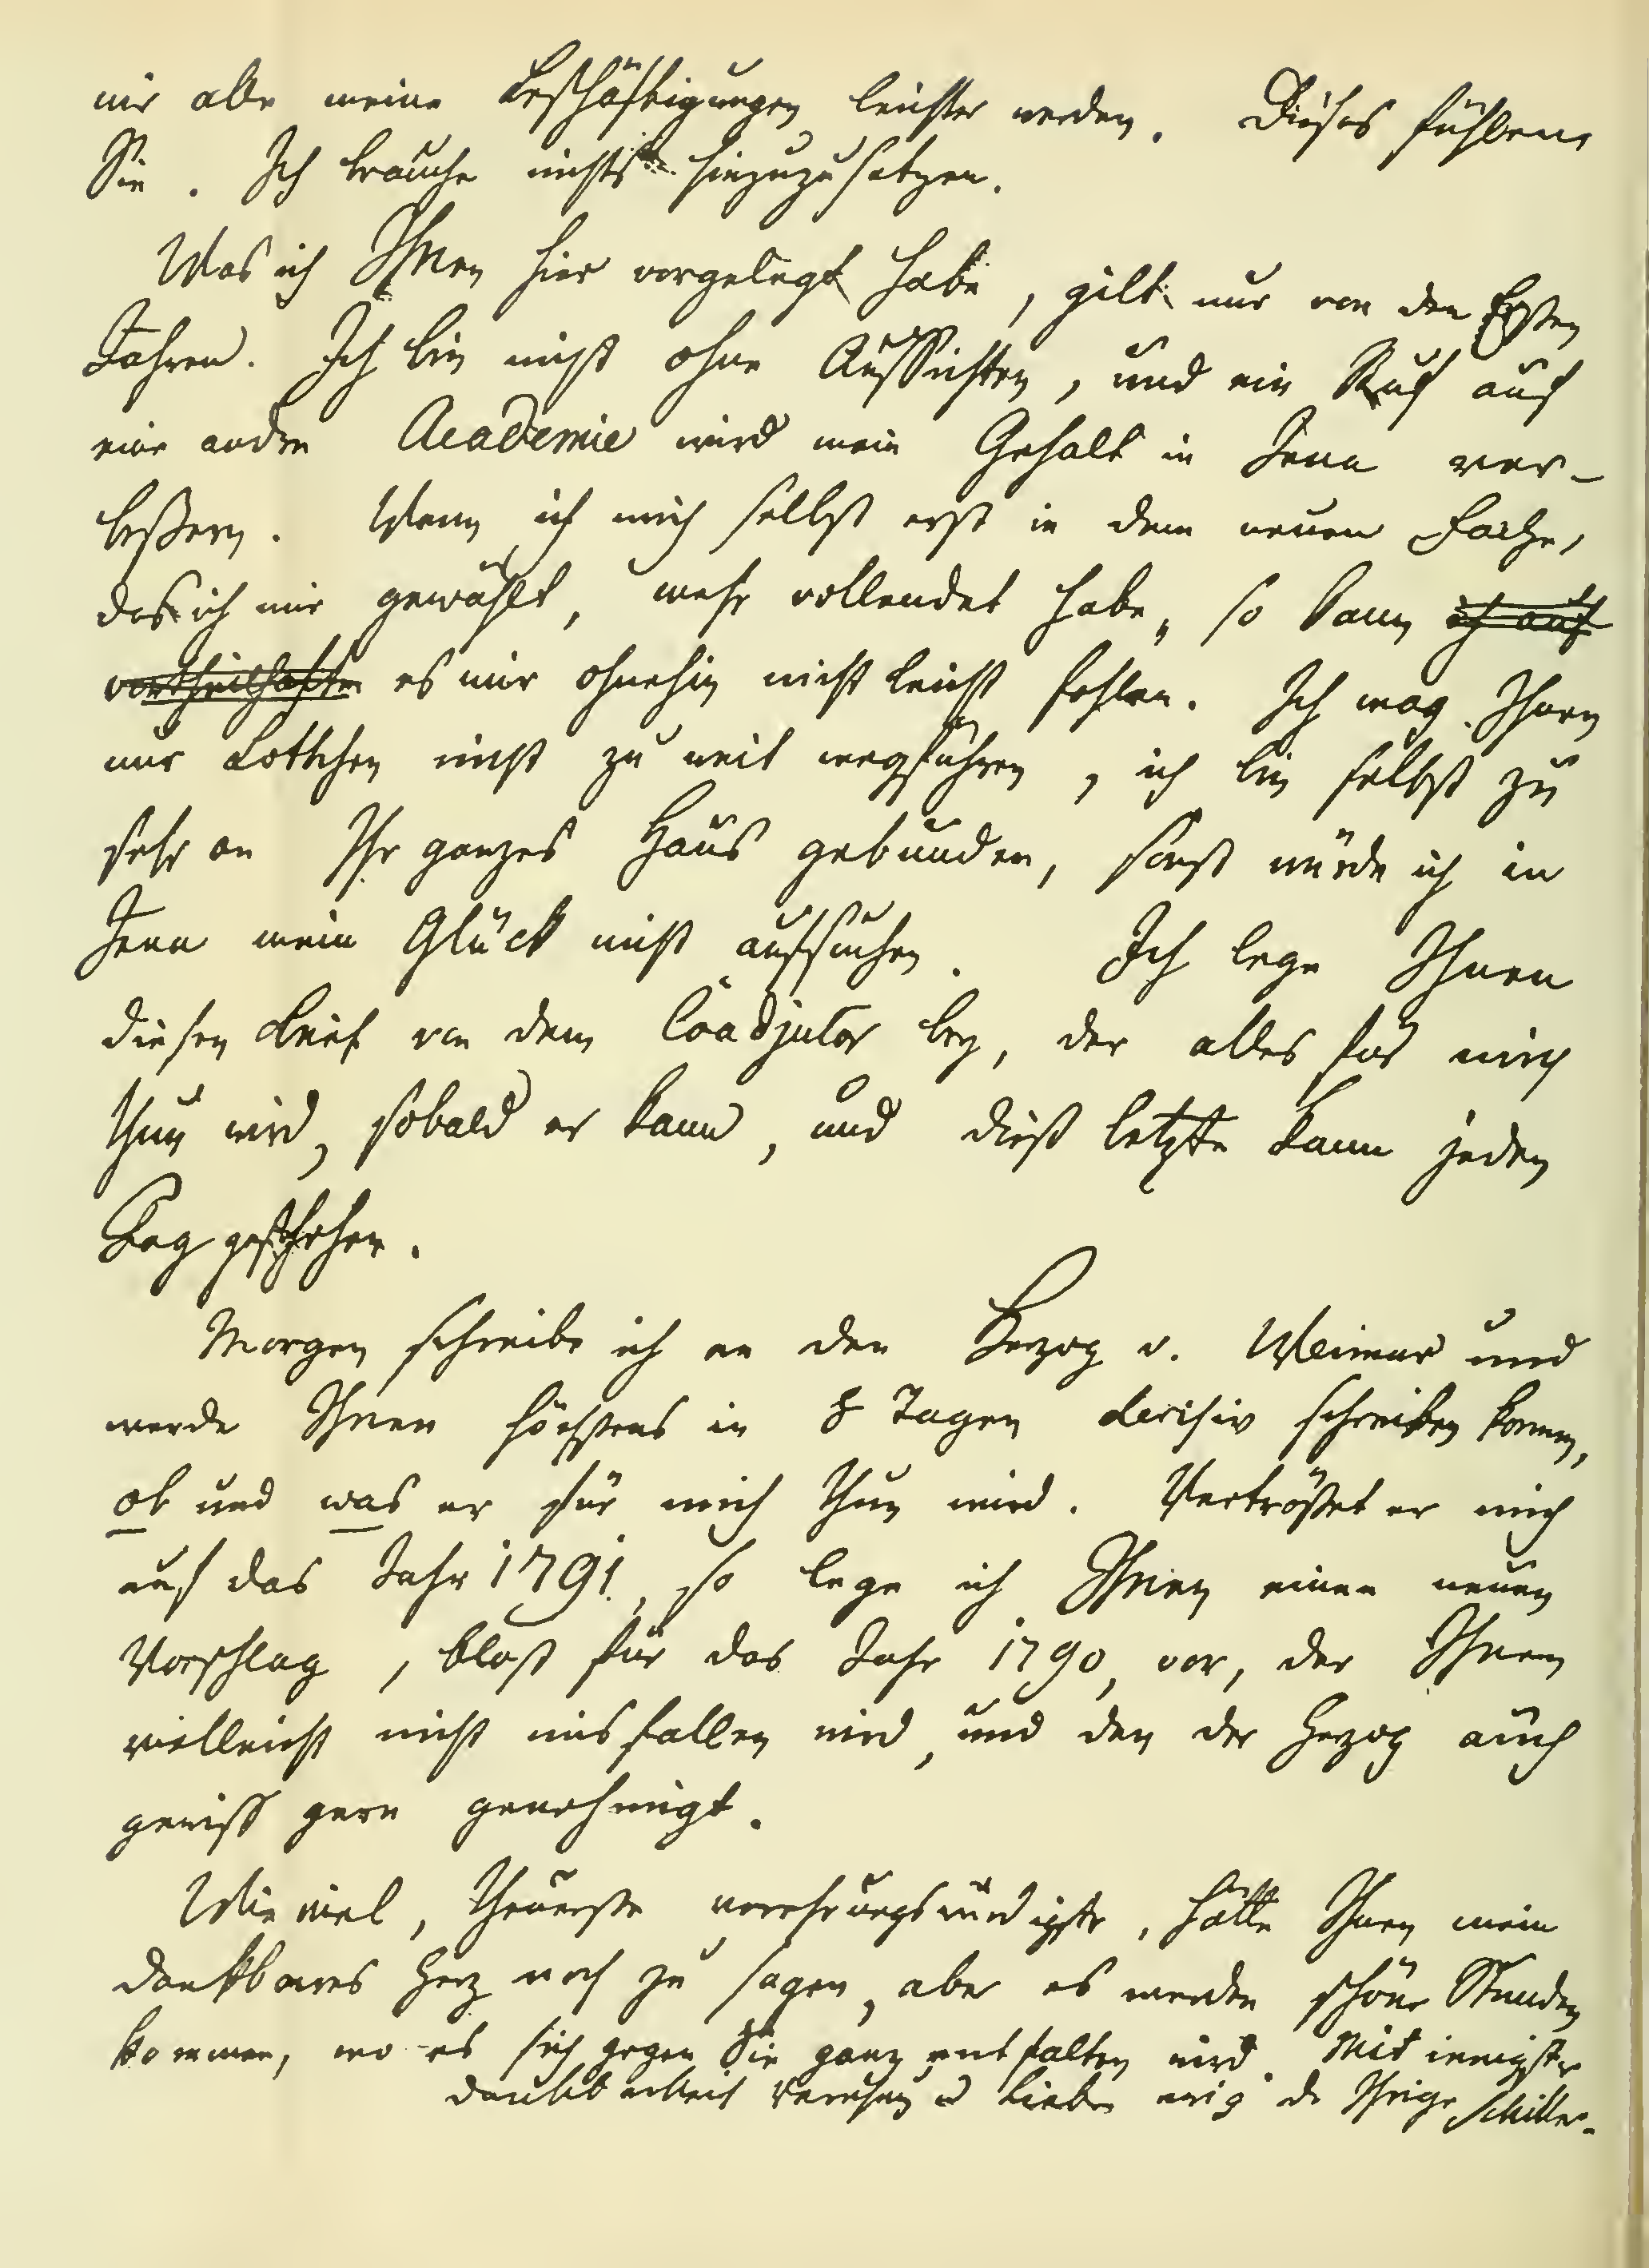 mir alle meine Beschäftigungen leichter werden. Dieses fühlen
Sie. Ich brauche nichts hinzuzusetzen.
Was ich Ihnen hier vorgelegt habe, gilt nur von den Ersten
Jahren. Ich bin nicht ohne Aussichten, und ein Ruf auf
eine andre Academie wird mein Gehalt in Jena ver-
beßern. Wenn ich mich selbst erst in dem neuen Fache,
das ich mir gewählt, mehr vollendet habe, so kann ich auf
vortheilhafte es mir ohnehin nicht leicht fehlen. Ich mag Ihnen
nur Lottchen nicht zu weit wegführen, ich bin selbst zu
sehr an Ihr ganzes Haus gebunden, sonst würde ich in
Jena mein Glück nicht aufsuchen. Ich lege Ihnen
diesen Brief von dem Coadjutor bey, der alles für mich
thun wird, sobald er kann, und dieß letzte kann jeden
Tag geschehen.
Morgen schreibe ich an den Herzog v. Weimar und
werde Ihnen höchstens in 8 Tagen decisiv schreiben können,
ob und was er für mich thun wird. Vertröstet er mich
auf das Jahr 1791, so lege ich Ihnen einen neuen
Vorschlag, bloß für das Jahr 1790, vor, der Ihnen
vielleicht nicht misfallen wird, und den der Herzog auch
gewiß gern genehmigt.
Wie viel, Theuerste verehrungswürdigste, hätte Ihnen mein
dankbares Herz noch zu sagen, aber es werden schöne Stunden
kommen, wo es sich gegen Sie ganz entfalten wird. Mit innigster
dankbarkeit Verehrung u Liebe ewig der Ihrige Schiller.